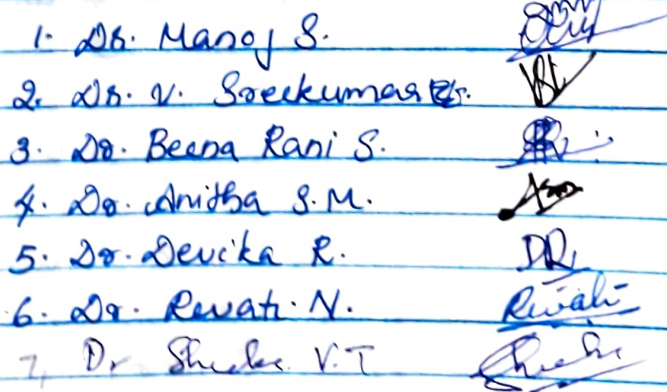 1. Dr. Manoj S.
2. Dr. V. Sreekumar
3. Dr. Beena Rani S.
4. Dr. Anitha S.M.
5. Dr. Devika R.
6. Dr. Revati. N. Revati
7. Dr V.T